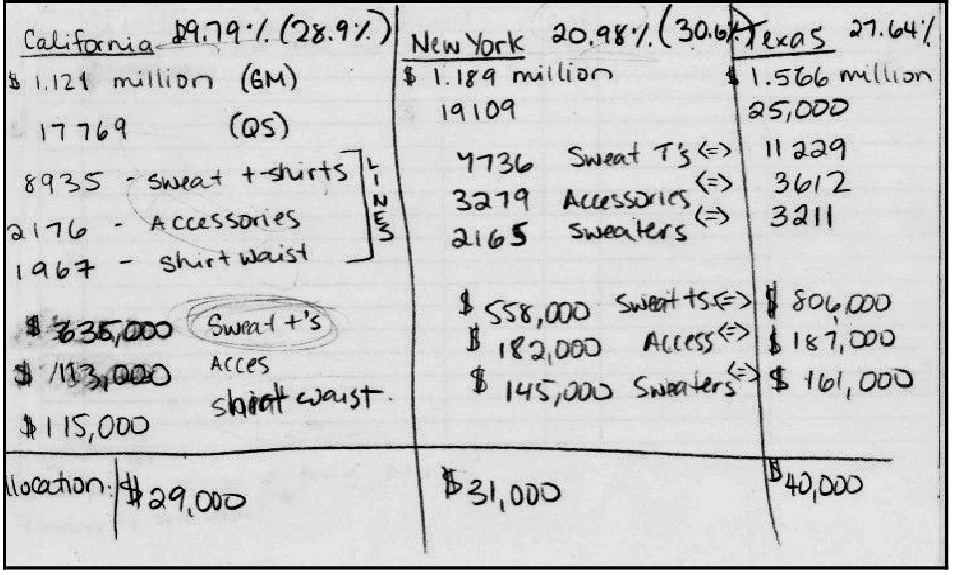 California 29.79% (28.9%)
$ 1.121 million (GM)
17769 (QS)
8935 - Sweat t-shirts
2176 - Accessories
1967 - Shirt waist
LINES
$ 635,000 Sweat t's
$ 113,000 Acces
$115,000 shirt waist.
New York 20.98% (30.6%)
$ 1.189 million
19109
7736 Sweat T's <=>
3279 Accessories <=>
2165 Sweaters <=>
$ 558,000 Sweat ts <=>
$ 182,000 Access <=>
$ 145,000 Sweaters <=>
Texas 27.64%
$ 1.566 million
25,000
11229
3612
3211
$ 806,000
$ 187,000
$ 161,000
llocation: $29,000
$31,000
$40,000